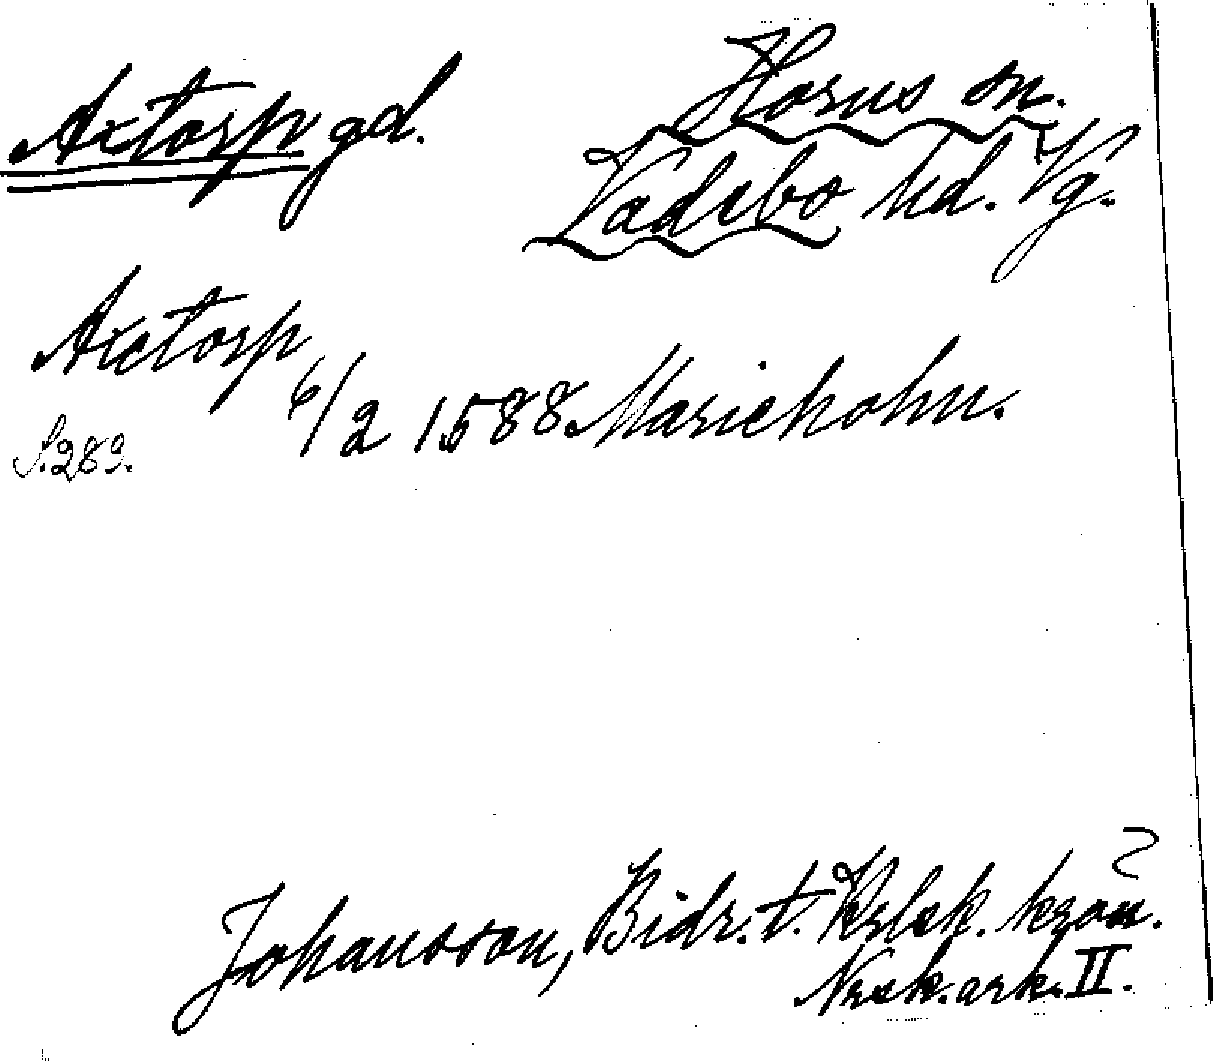 Axtorp gd.
Horns sn.
Vadsbo hd. Vg.
Axetorp
6/2 1588. Mariehohn.
S. 289.
Johansson, Bidr. t. Krlsk. krön.
Nrsk. ark. II.